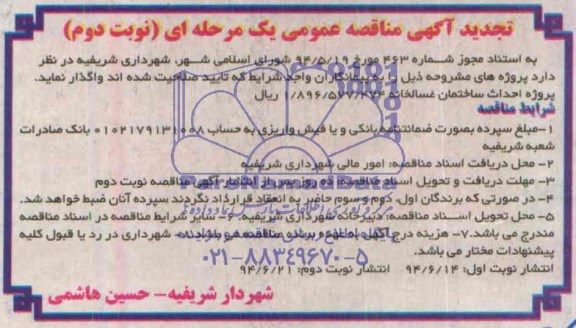 تجدید آگهی مناقصه عمومی یک مرحله ای (نوبت دوم)
به استناد مجوز شماره ۴۶۳ مورخه ۹۴/۵/۱۹ شورای اسلامی شهر، شهرداری شریفیه در نظر
دارد پروژه های مشروحه ذیل را به پیمانکاران واجد شرایط که تایید صلاحیت شده اند واگذار نماید.
پروژه احداث ساختمان غسالخانه ۱/۸۹۶/۵۷۷/۴۷۴ ریال
شرایط مناقصه
۱-مبلغ سپرده بصورت ضمانتنامه بانکی و یا فیش واریزی به حساب ۰۱۰۲۱۷۹۱۳۱۰۰۸ بانک صادرات
شعبه شریفیه
۲- محل دریافت اسناد مناقصه: امور مالی شهرداری شریفیه
۳- مهلت دریافت و تحویل اسناد مناقصه: ده روز پس از انتشار آگهی مناقصه نوبت دوم
۴- در صورتی که برندگان اول، دوم و سوم حاضر به انعقاد قرارداد نگردند سپرده آنان ضبط خواهد شد.
۵- محل تحویل اسناد مناقصه: دبیرخانه شهرداری شریفیه. ۶- سایر شرایط مناقصه در اسناد مناقصه
مندرج می باشد. ۷- هزینه درج آگهی به عهده برنده مناقصه می باشد. ۸- شهرداری در رد یا قبول کلیه
پیشنهادات مختار می باشد.
۰۲۱-۸۸۳۴۹۶۷۰-۵
انتشار نوبت اول: ۹۴/۶/۱۴ انتشار نوبت دوم: ۹۴/۶/۲۱
شهردار شریفیه- حسین هاشمی